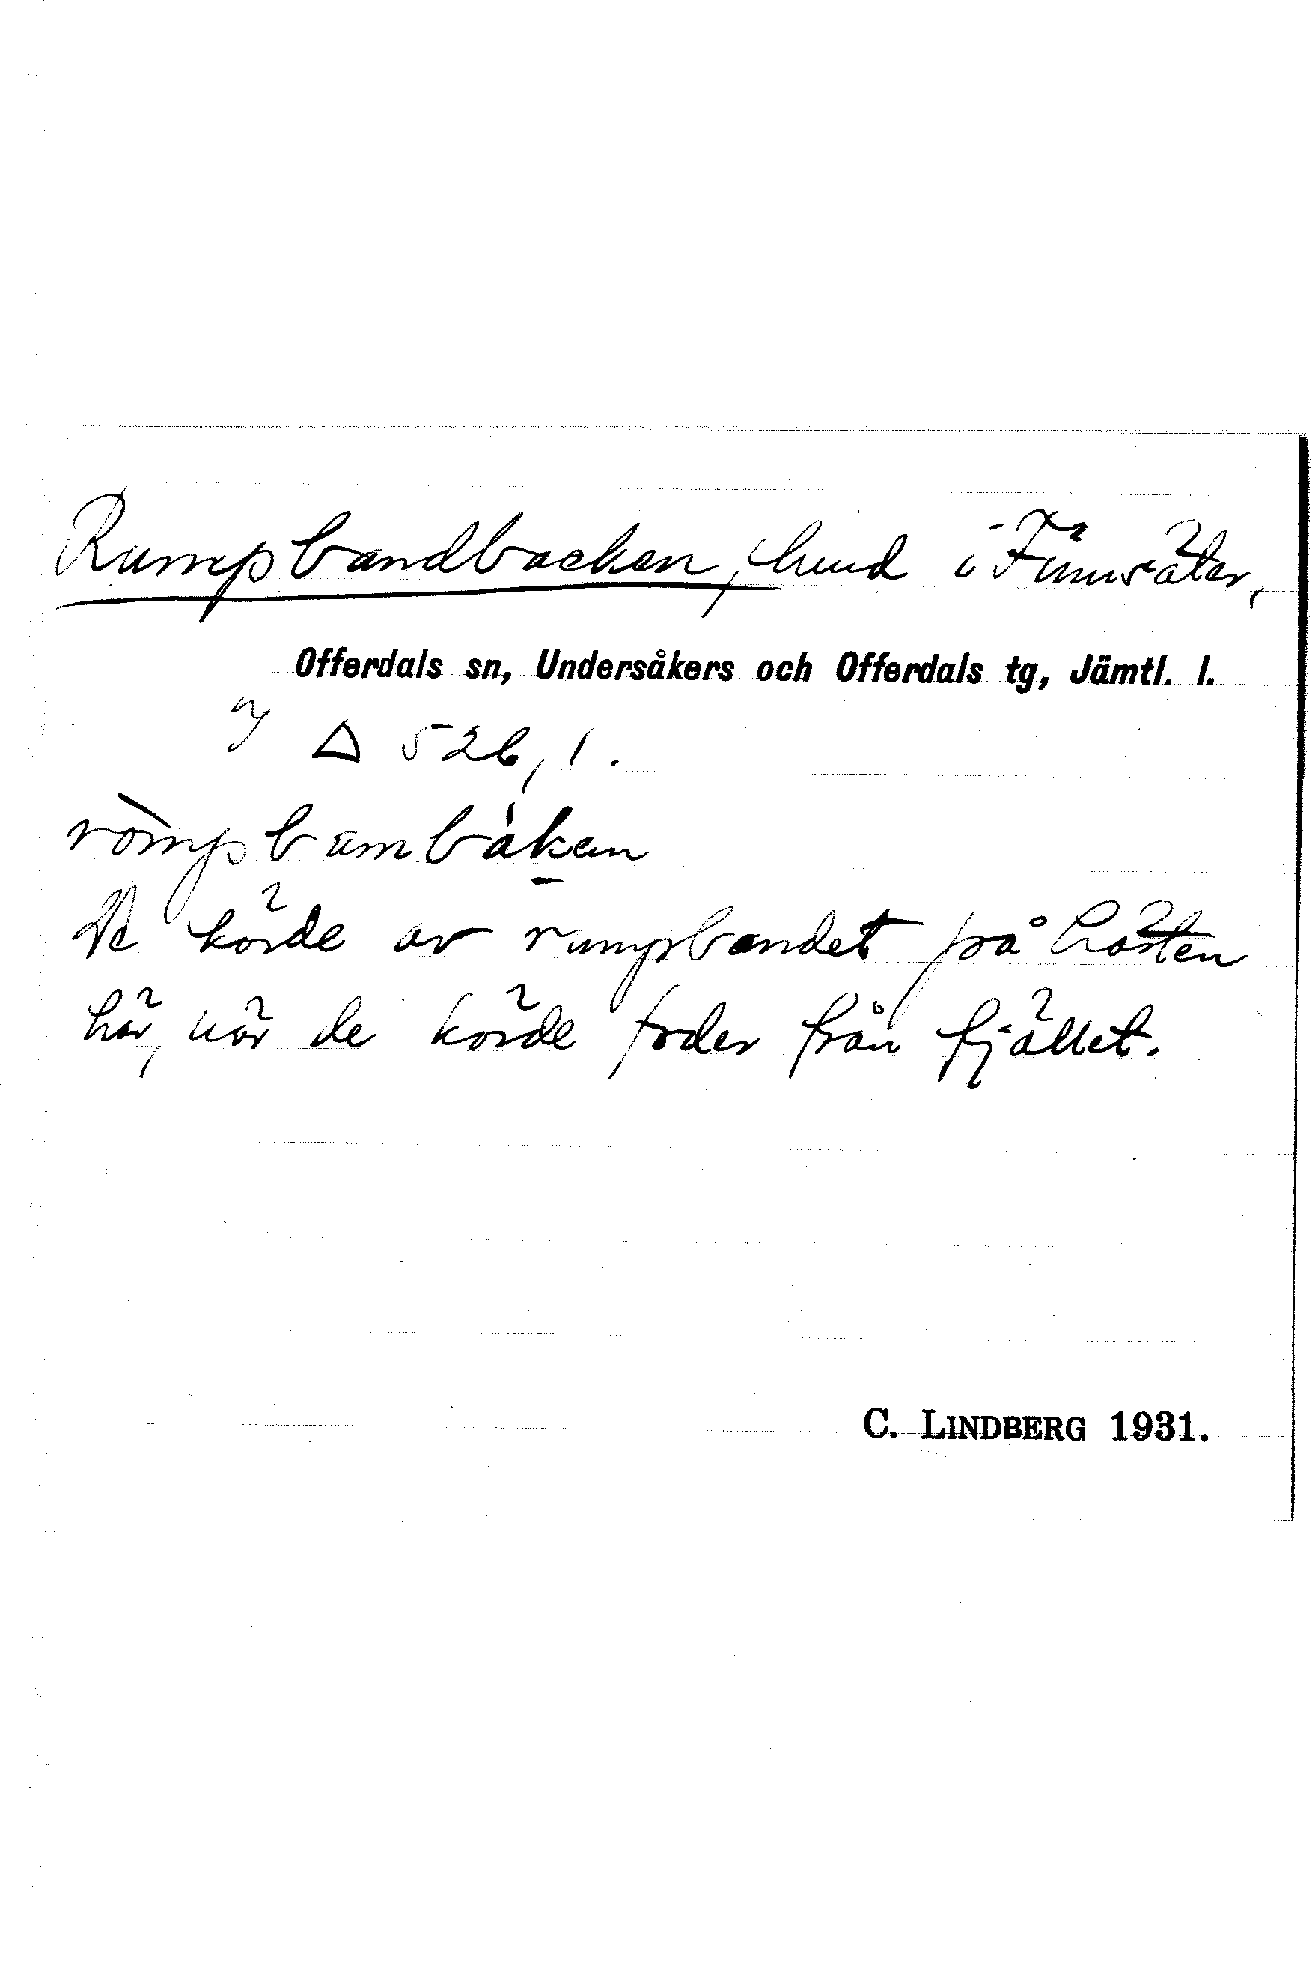 Rumpbandbacken, lund i Finnsäter,
Offerdals sn, Undersåkers och Offerdals tg, Jämtl. l.
∆ 526,1.
ròmpbambàkan
De körde av rumpbandet på hästen
här, när de körde foder från fjället.
C. LINDBERG 1931.